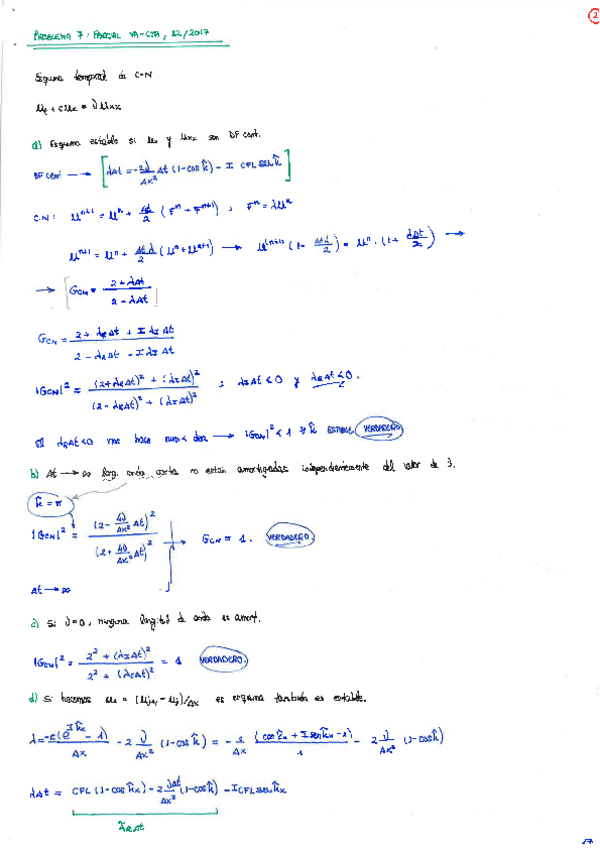 2
PROBLEMA 7: PARCIAL VA-CTA, 12/2017
Esquema temporal es C-N
u_t + c u_x = ν u_xx
a) Esquema estable si u_x y u_xx son DF cent.
DF cent → [λΔt = -2ν/Δx² Δt (1-cos k̂) - I CFL sen k̂]
C.N: u^{n+1} = u^n + Δt/2 (F^n + F^{n+1}) ; F^n = λu^n
u^{n+1} = u^n + Δtλ/2 (u^n + u^{n+1}) → u^{n+1} (1 - Δtλ/2) = u^n · (1 + λΔt/2) →
→ [G_CN = (2+λΔt)/(2-λΔt)]
G_CN = (2 + λ_RΔt + Iλ_IΔt)/(2 - λ_RΔt - Iλ_IΔt)
|G_CN|² = ((2+λ_RΔt)² + (λ_IΔt)²)/((2-λ_RΔt)² + (λ_IΔt)²) ; λ_IΔt < 0 y λ_RΔt < 0.
El λ_RΔt<0 me hace num < den → |G_CN|² < 1 ∀ k̂ ESTABLE VERDADERO
b) Δt → ∞ long. onda corta no están amortiguadas independientemente del valor de ν.
k̂ = π
|G_CN|² = (2 - 4ν/Δx² Δt)²/(2 + 4ν/Δx² Δt)² → G_CN = 1. VERDADERO.
Δt → ∞
c) Si ν=0, ninguna longitud de onda es amort.
|G_CN|² = (2² + (λ_IΔt)²)/(2² + (λ_IΔt)²) = 1 VERDADERO.
d) Si hacemos u_x = (u_{j+1} - u_j)/Δx es esquema también es estable.
λ = -c(e^{I k̂_x} - 1)/Δx - 2 ν/Δx² (1-cos k̂) = - c/Δx (cos k̂_x + I sen k̂_x - 1)/1 - 2 ν/Δx² (1-cos k̂)
λΔt = CFL (1-cos k̂_x) - 2 νΔt/Δx² (1-cos k̂) - I CFL sen k̂_x
λ_RΔt